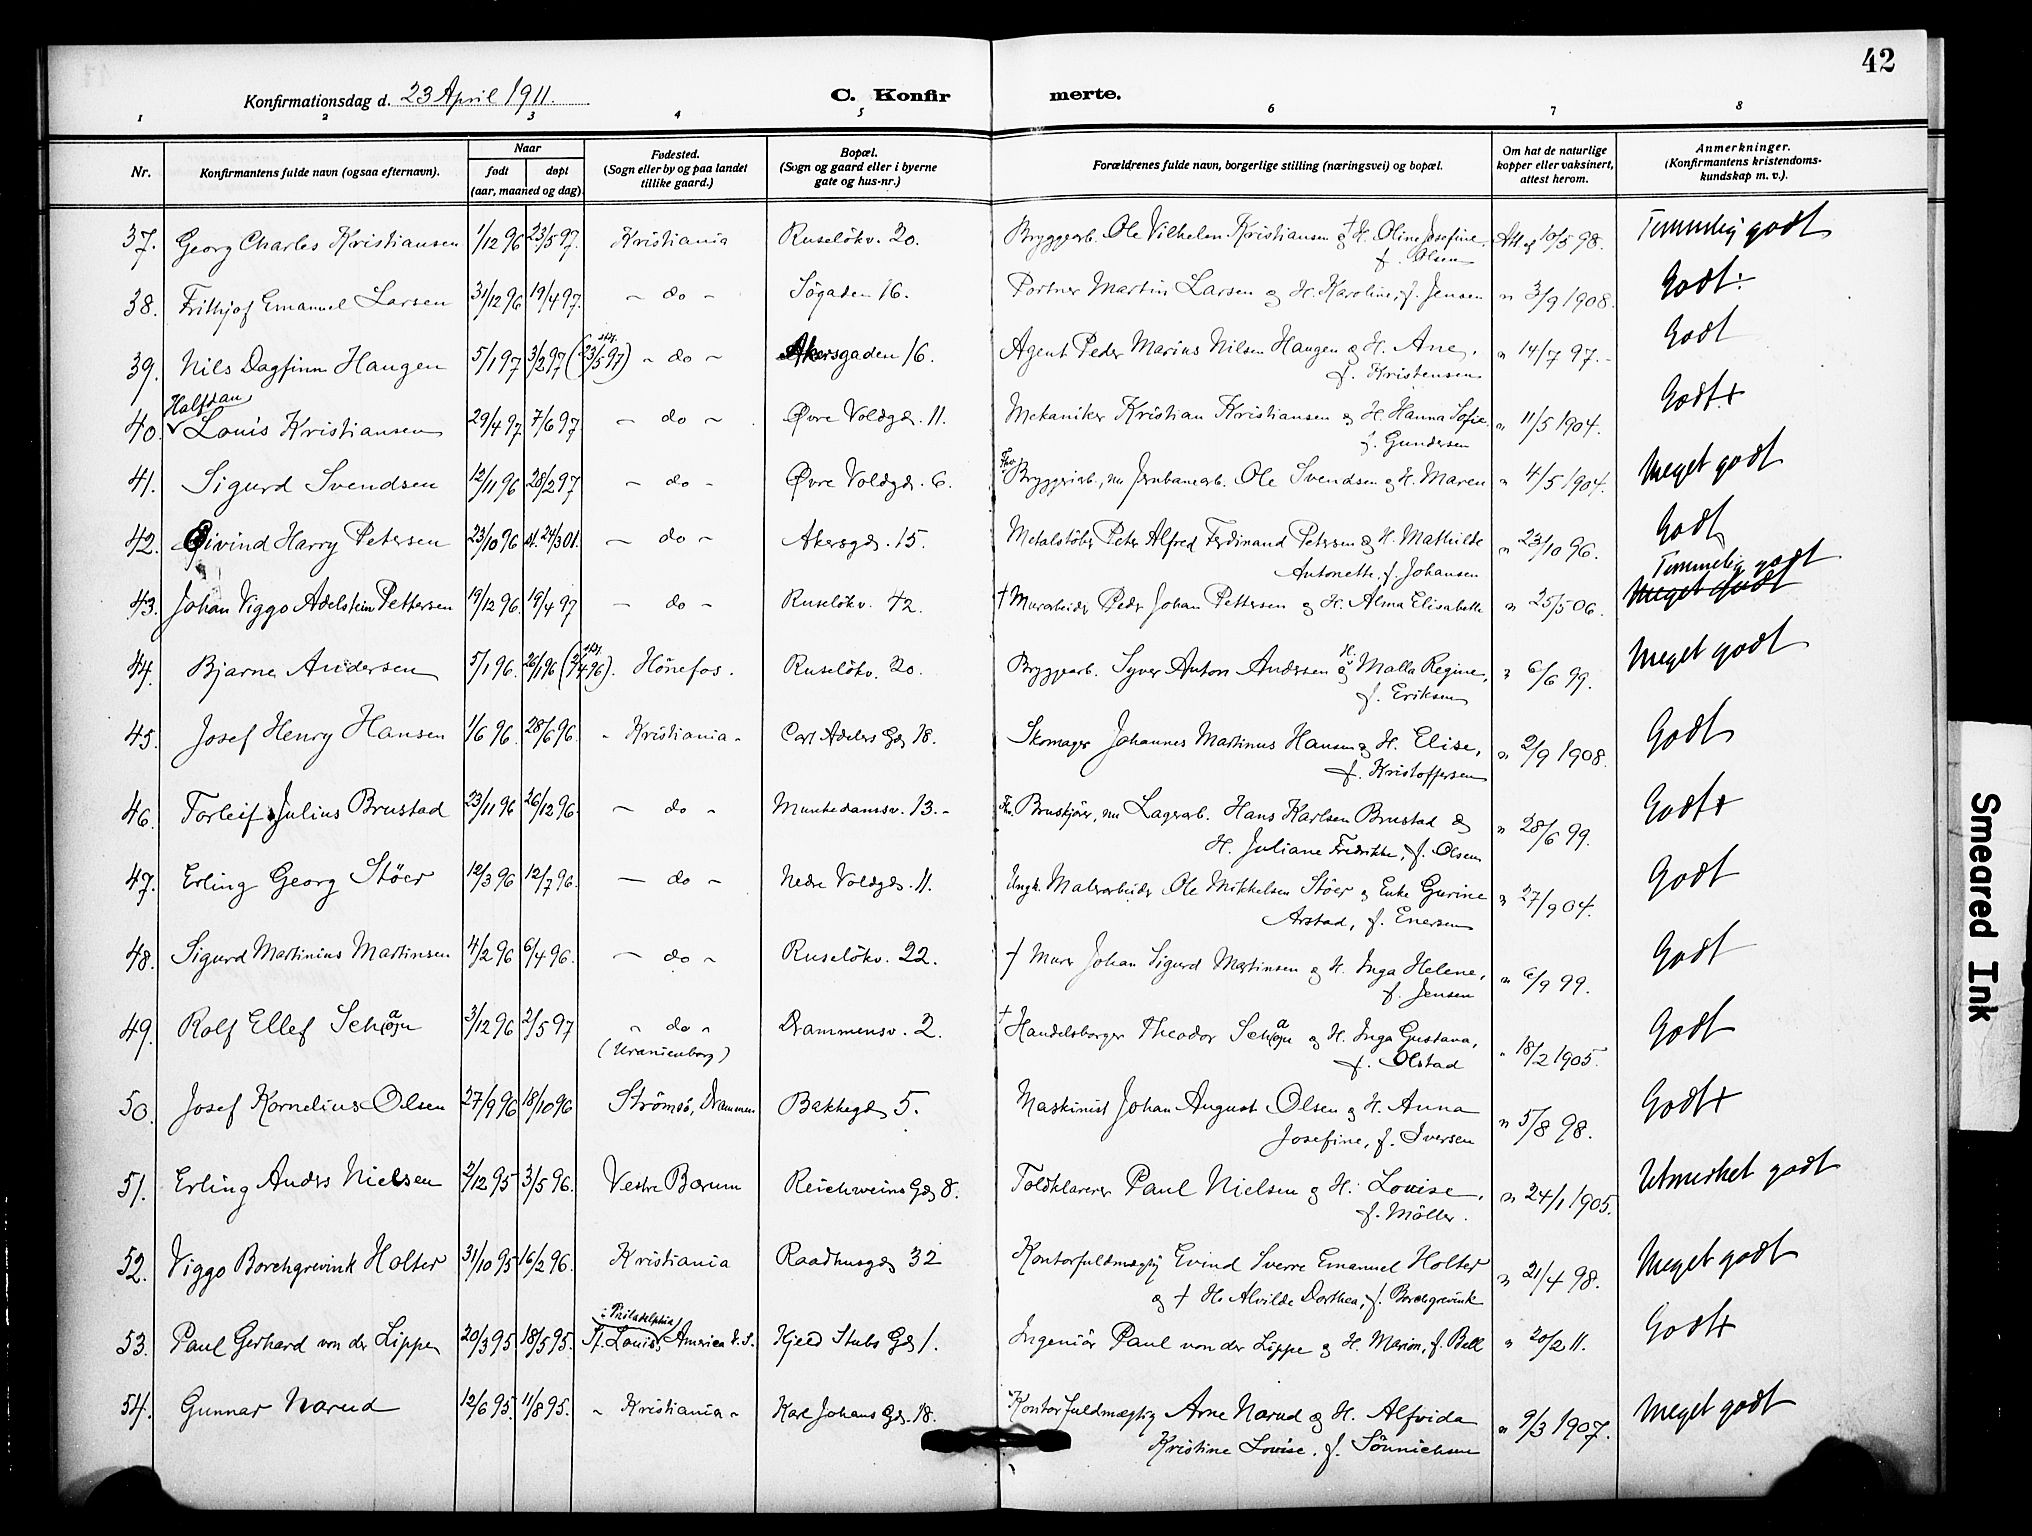 42
Konfirmationsdag d. 23 April 1911.
C. Konfirmerte.
1 2 3 4 5 6 7 8
Nr. Konfirmantens fulde navn (ogsaa efternavn). Naar født døpt (aar, maaned og dag). Fødested. (Sogn eller by og paa landet tillike gaard.) Bopæl. (Sogn og gaard eller i byerne gate og hus-nr.) Forældrenes fulde navn, borgerlige stilling (næringsvei) og bopæl. Om hat de naturlige kopper eller vaksinert, attest herom. Anmerkninger. (Konfirmantens kristendoms-kundskap m. v.).
37. Georg Charles Kristiansen 1/12 96 23/5 97. Kristiania Ruselökv. 20. Bryggearb. Ole Vilhelm Kristiansen & † H. Oline Josefine, f. Olsen Att af 10/5 98. Temmelig godt
38. Frithjof Emanuel Larsen 31/12 96 19/4 97. - do - Søgaden 16. Portner Martin Larsen & H. Karoline, f. Jensen " 3/9 1908. Godt÷
39. Nils Dagfinn Haugen 5/1 97 3/2 97 (23/5 97) - do - Akersgaden 16. Agent Peder Marius Nilsen Haugen & H. Ane, f. Kristensen " 14/7 97. Godt
40. Halfdan Louis Kristiansen 29/4 97 7/6 97 - do - Øvre Voldgd. 11. Mekaniker Kristian Kristiansen & H. Hanna Sofie f. Gundersen " 11/5 1904. Godt+
41. Sigurd Svendsen 12/11 96 28/2 97 - do - Øvre Voldgd. 6. Fhv. Bryggeriarb., nu Jernbanearb. Ole Svendsen & H. Maren " 4/5 1904. Meget godt
42. Øivind Harry Petersen 23/10 96 24/3 01. - do - Akersgd. 15. Metalstöber Peter Alfred Ferdinand Petersen & H. Mathilde Antonette, f. Johansen " 23/10 96. Godt
43. Johan Viggo Adelstein Pettersen 19/12 96. 19/4 97 - do - Ruselökv. 42. † Murarbeider Peder Johan Pettersen & H. Alma Elisabeth " 25/5 06. Temmelig godt Meget Godt
44. Bjarne Andersen 5/1 96. 26/1 96 (7/4 96). Hönefos. Ruselökv. 20. Bryggearb. Syver Anton Andersen & H. Malla Regine, f. Eriksen " 6/6 99. Meget godt
45. Josef Henry Hansen 1/6 96. 28/6 96. - Kristiania - Carl Adelers Gd 18. Skomager Johannes Martinus Hansen & H. Elise, f. Kristoffersen " 2/9 1908. Godt
46. Torleif Julius Brustad 23/11 96 26/12 96. - do - Munkedamsv. 13. Fhv. Bruskjører, nu Lagerarb. Hans Karlsen Brustad & H. Juliane Fredrikke, f. Olsen " 28/6 99. Godt+
47. Erling Georg Stöer 12/3 96 12/7 96. - do - Nedre Voldgd. 11. Ungk. Malerarbeider Ole Mikkelsen Stöer & Enke Gurine Arstad, f. Enersen " 27/9 04. Godt
48. Sigurd Martinius Martinsen 4/2 96 6/4 96. - do - Ruselökv. 22. † Murer Johan Sigurd Martinsen & H. Inga Helene, f. Jensen " 6/9 99. Godt
49. Rolf Ellef 3/12 96 2/5 97 " do " (Uranienborg) Drammensv. 2. † Handelsborger Theodor & H. Inga Gustava, f. Olstad " 18/2 1905. Godt
50. Josef Kornelius Olsen 27/9 96 18/10 96 Strömsö, Drammen Bakkegd 5. Maskinist Johan August Olsen & H. Anna Josefine, f. Iversen " 5/8 98. Godt+
51. Erling Anders Nielsen 2/12 95 3/5 96. Vestre Bærum Reichweins Gd 8. Toldklarerer Paul Nielsen & H. Louise, f. Möller. " 24/1 1905. Utmerket godt
52. Viggo Borchgrevink Holter 31/10 95 16/2 96. Kristiania Raadhusgd 32 Kontorfuldmægtig Eivind Sverre Emanuel Holter & † H. Alvilde Dorthea, f. Borchgrevink " 21/4 98. Meget godt
53. Paul Gerhard von der Lippe 20/3 95 18/5 95. i Philadelphia St. Louis, America U.S. Kjeld Stubs Gd 1. Ingeniør Paul von der Lippe & H. Marion, f. Bell " 20/2 11. Godt+
54. Gunnar Narud 12/6 95. 11/8 95. - Kristiania - Karl Johans Gd. 18. Kontorfuldmægtig Arne Narud & H. Alfvida Kristine Lovise, f. Sönnichsen " 9/3 1907. Meget godt
Smeared Ink